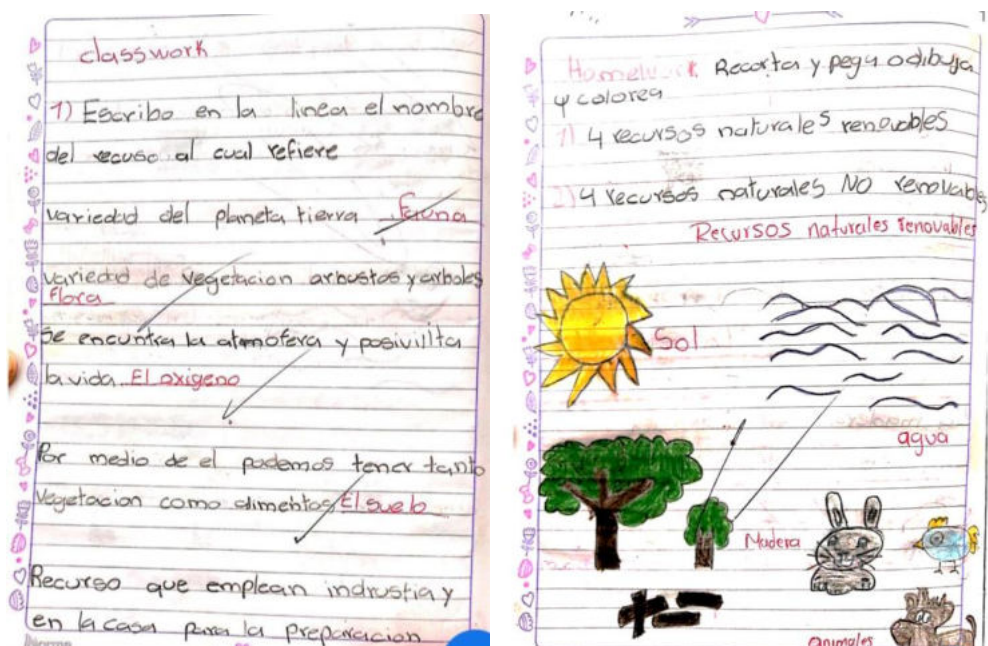 classwork
1) Escribo en la linea el nombre
del recuso al cual refiere
variedad del planeta tierra Fauna
variedad de vegetacion arbustos y arboles
Flora
Se encuntra la atmofera y posivilita
la vida El oxigeno
Por medio de el podemos tener tanto
vegetacion como alimentos El suelo
Recurso que emplean indrustia y
en la casa para la preparacion
Norma
Homework Recorta y pega o dibuja
y colorea
1) 4 recursos naturales renovables
2) 4 recursos naturales NO renovables
Recursos naturales renovables
Sol
agua
Madera
animales